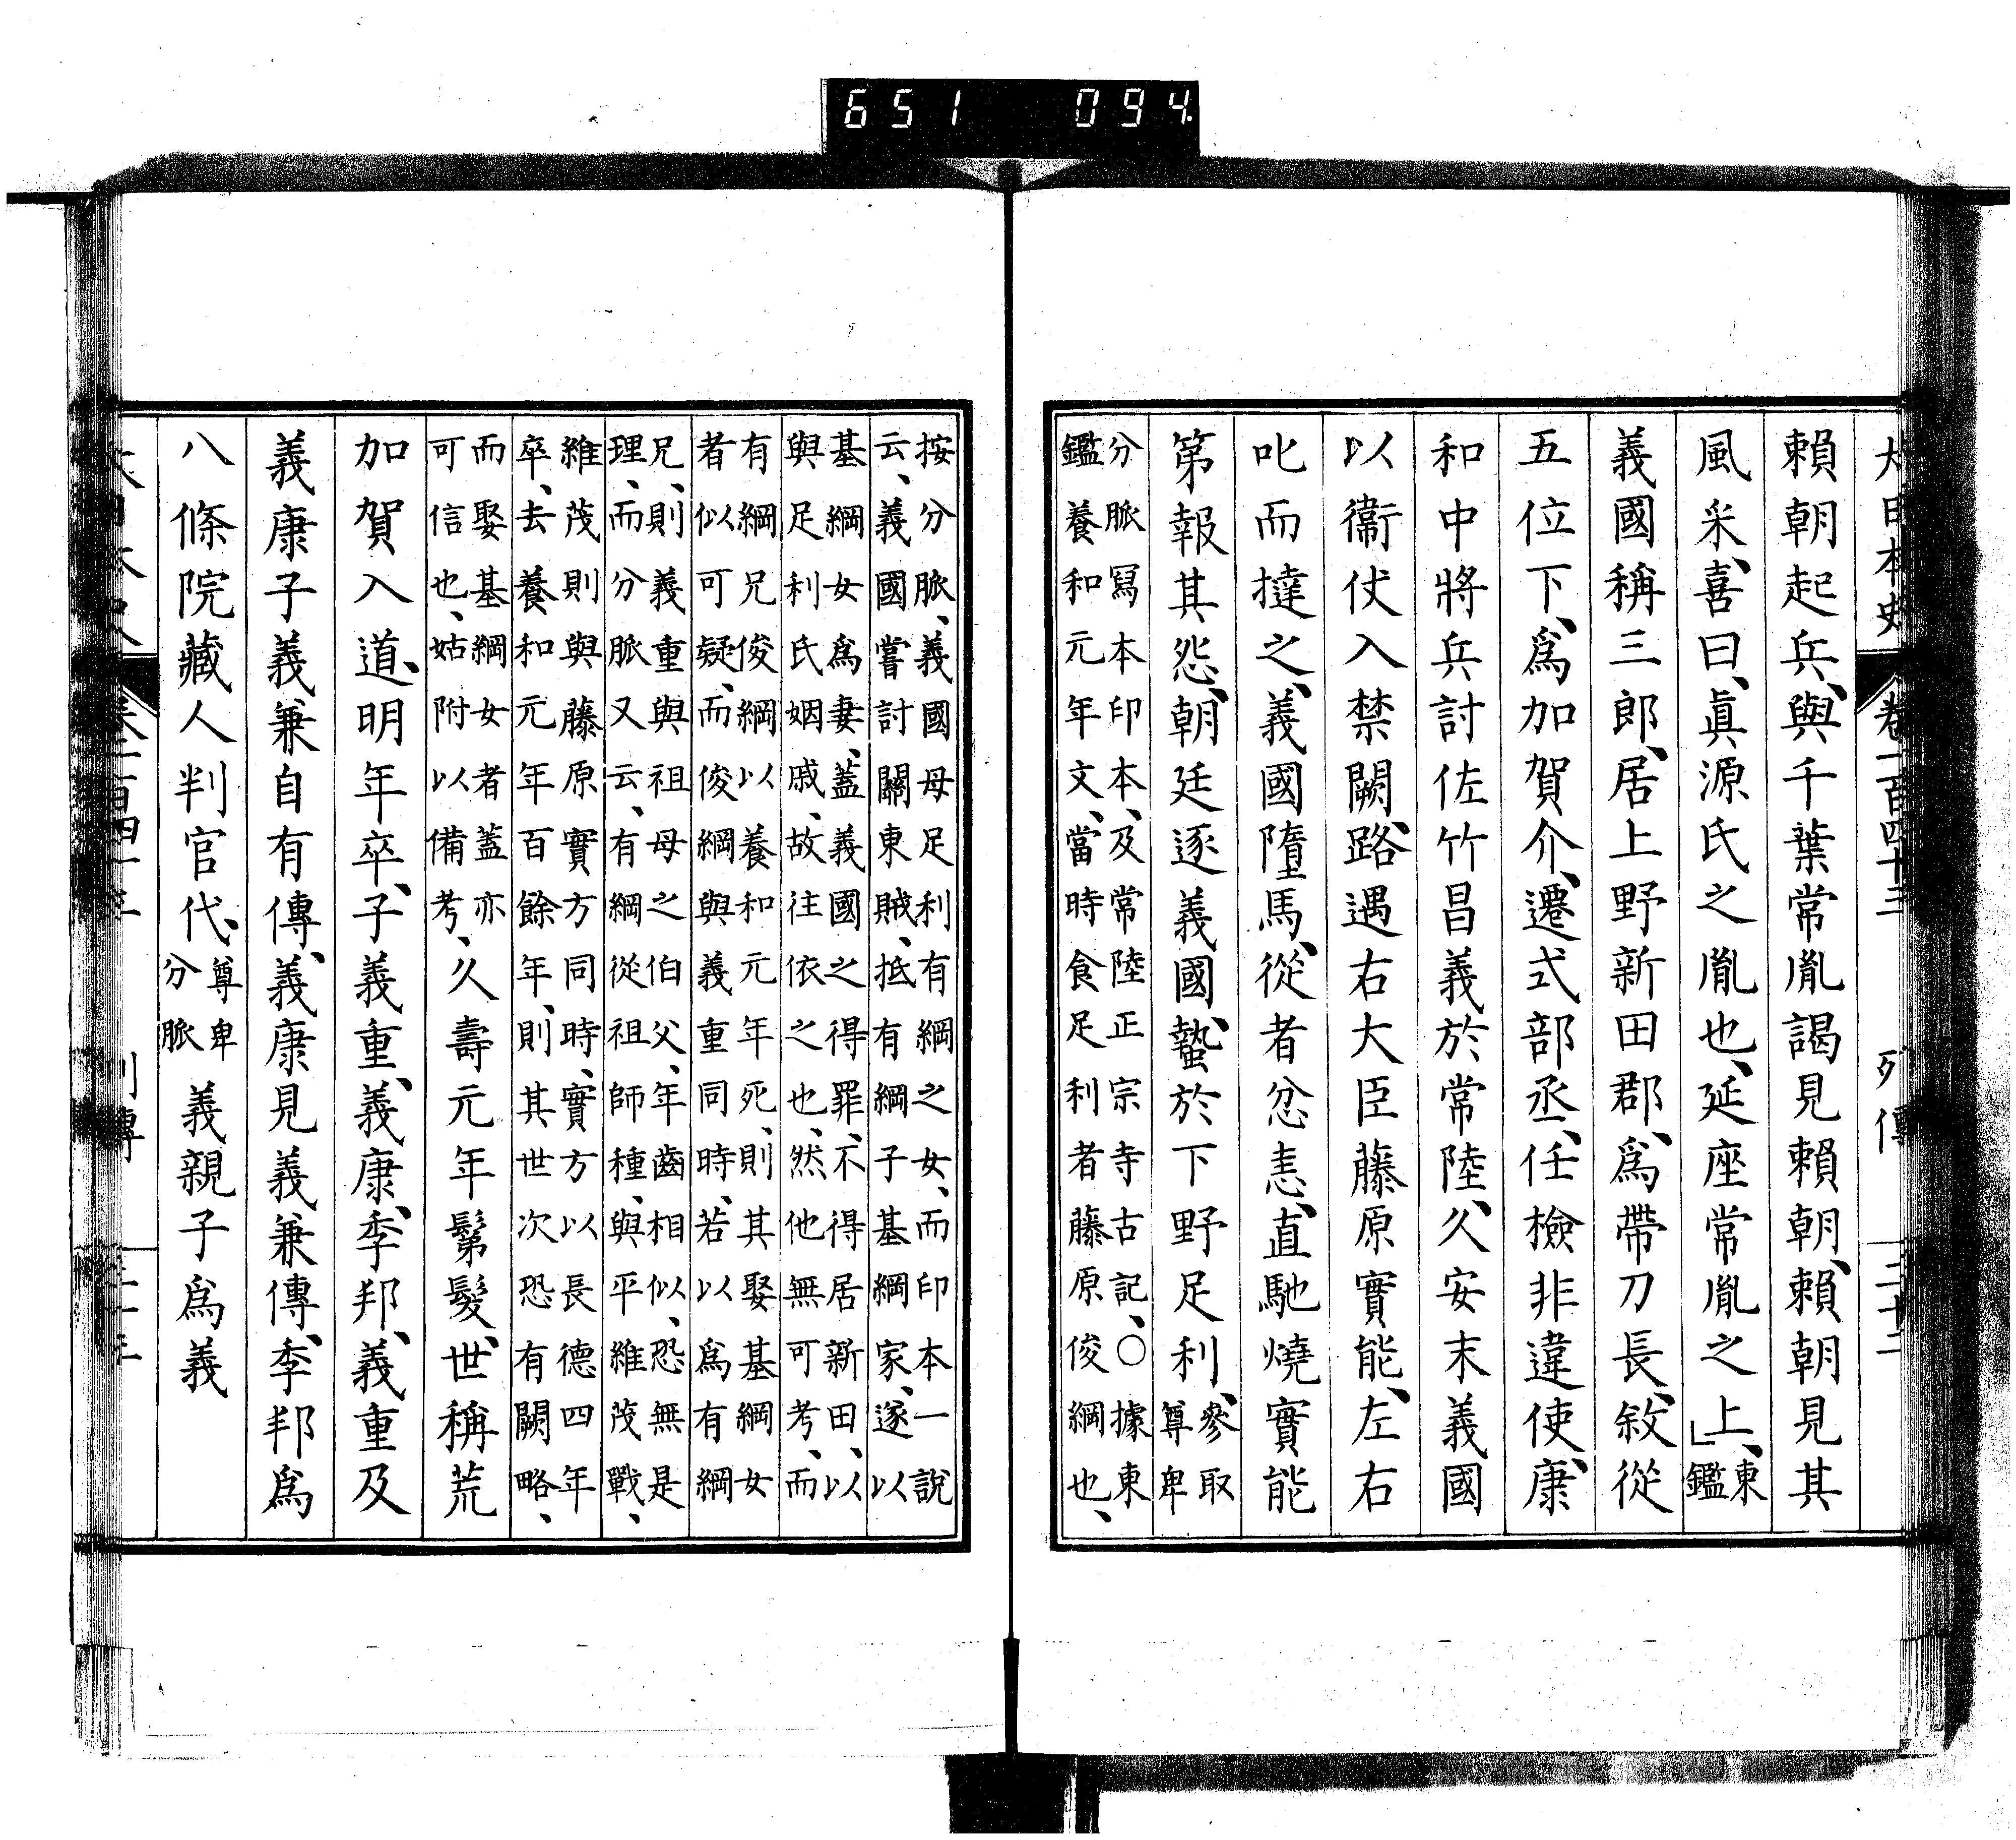 651 094
大日本史 卷一百四十二 列傳 三十二
賴朝起兵、與千葉常胤謁見賴朝、賴朝見其
風采、喜曰、眞源氏之胤也、延座常胤之上、」東鑑
義國稱三郎、居上野新田郡、爲帶刀長、敍從
五位下、爲加賀介、遷式部丞、任檢非違使、康
和中將兵討佐竹昌義於常陸、久安末義國
以衞仗入禁闕、路遇右大臣藤原實能、左右
叱而撻之、義國墮馬、從者忿恚、直馳燒實能
第報其怨、朝廷逐義國、蟄於下野足利、參取尊卑
分脈寫本印本、及常陸正宗寺古記、〇據東
鑑養和元年文、當時食足利者藤原俊綱也、
按分脈、義國母足利有綱之女、而印本一說
云、義國嘗討關東賊、抵有綱子基綱家、遂以
基綱女爲妻、蓋義國之得罪、不得居新田、以
與足利氏姻戚、故往依之也、然他無可考、而
有綱兄俊綱以養和元年死、則其娶基綱女
者似可疑、而俊綱與義重同時、若以爲有綱
兄、則義重與祖母之伯父、年齒相似、恐無是
理、而分脈又云、有綱從祖師種、與平維茂戰、
維茂則與藤原實方同時、實方以長德四年
卒、去養和元年百餘年、則其世次恐有闕略、
而娶基綱女者蓋亦
可信也、姑附以備考、久壽元年鬀髮、世稱荒
加賀入道、明年卒、子義重、義康、季邦、義重及
義康子義兼自有傳、義康見義兼傳、季邦爲
八條院藏人判官代、尊卑分脈義親子爲義